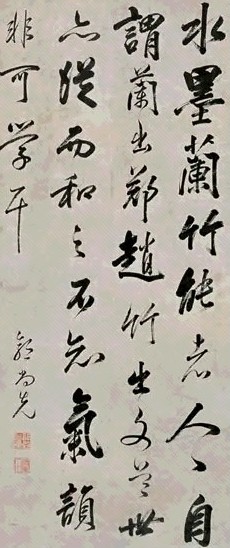 水墨蘭竹能者人〻自
謂蘭出鄭趙竹出文世
亦從而和之不知氣韻
非可学耳
郭尚先